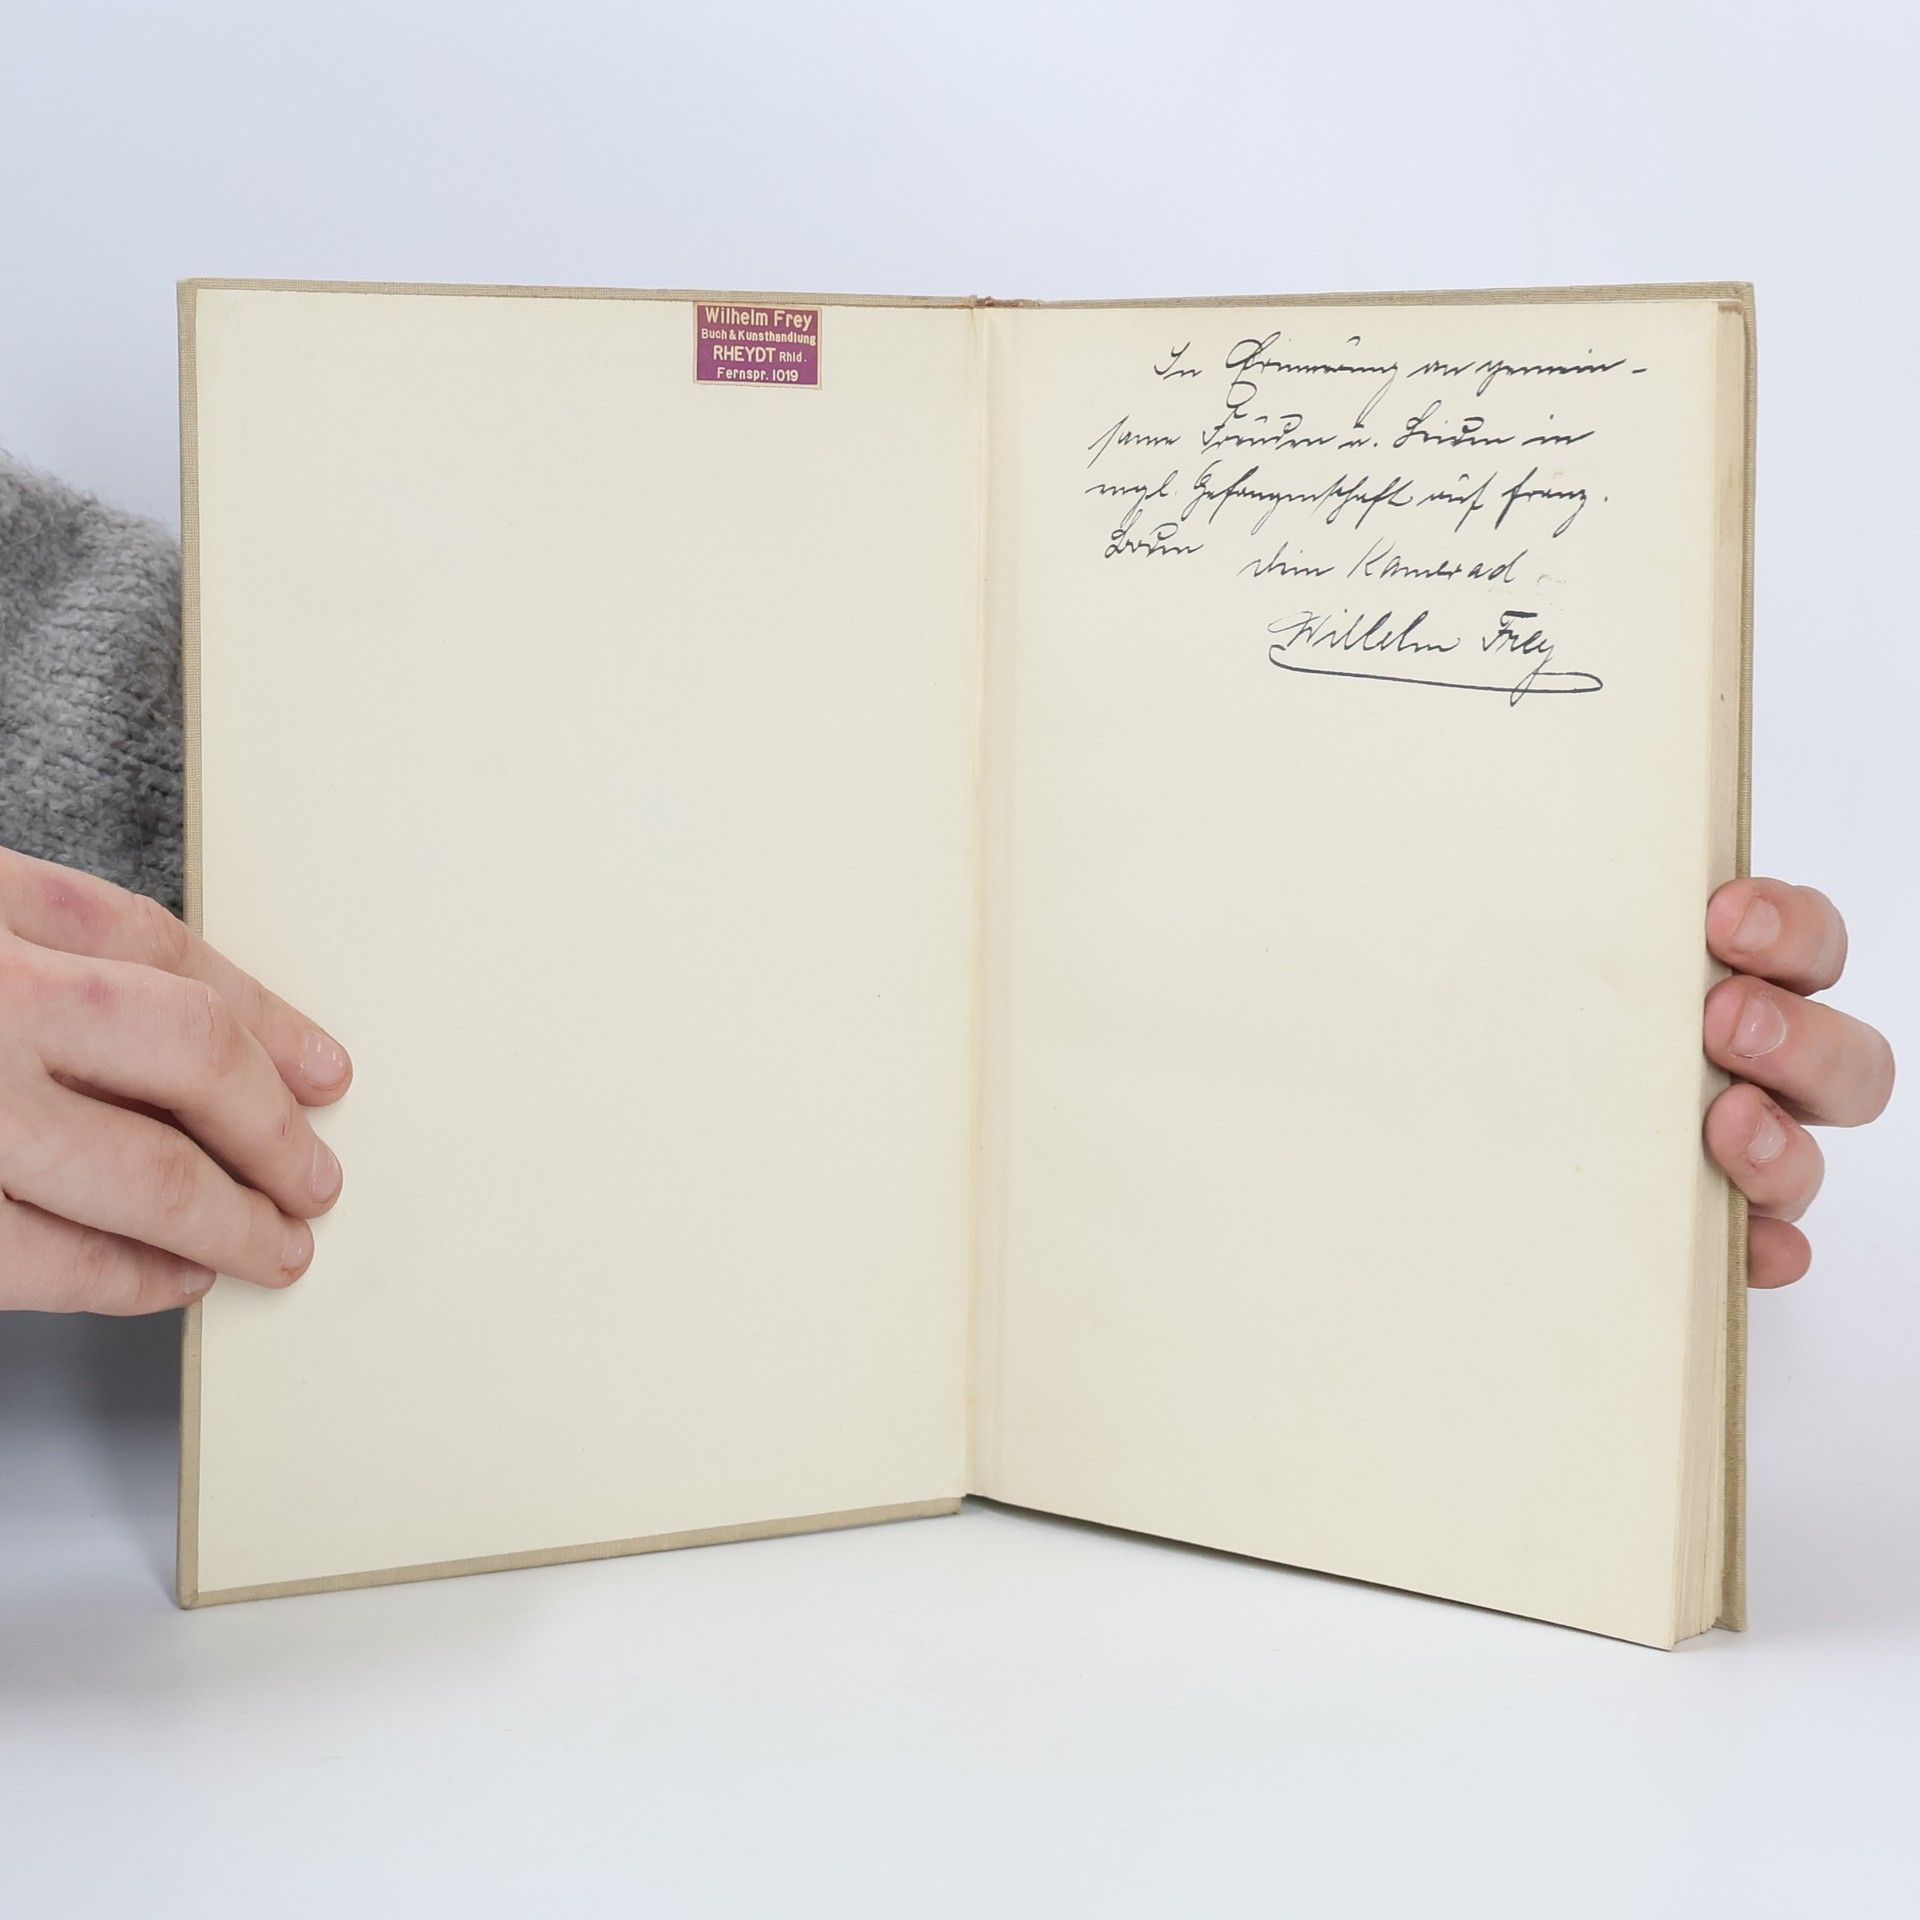 Wilhelm Frey
Buch & Kunsthandlung
RHEYDT Rhld.
Fernspr. 1019
In Erinnerung an gemein-
same Freuden u. Leiden in
engl. Gefangenschaft auf franz.
Boden
dein Kamerad
Wilhelm Frey